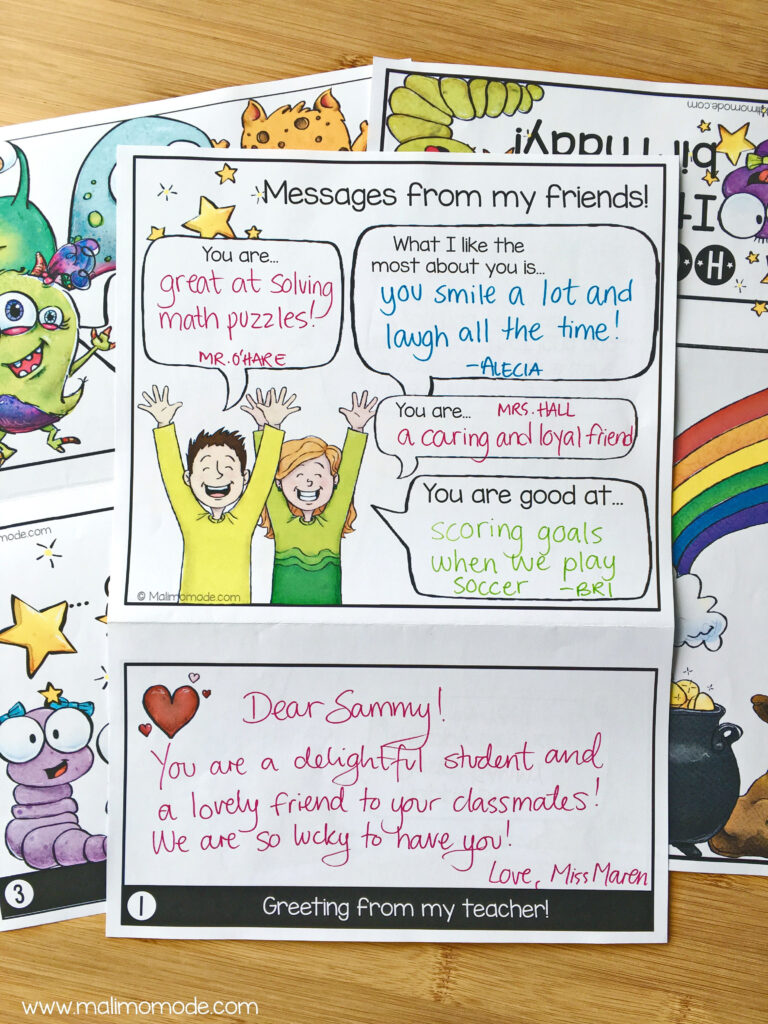 Malimomode.com
birthday!
Messages from my friends!
You are...
great at solving
math puzzles!
MR. O'HARE
What I like the
most about you is...
you smile a lot and
laugh all the time!
-ALECIA
You are... MRS. HALL
a caring and loyal friend
You are good at...
scoring goals
when we play
soccer -BRI
© Malimomode.com
Dear Sammy!
You are a delightful student and
a lovely friend to your classmates!
We are so lucky to have you!
Love, Miss Maren
1 Greeting from my teacher!
3
www.malimomode.com